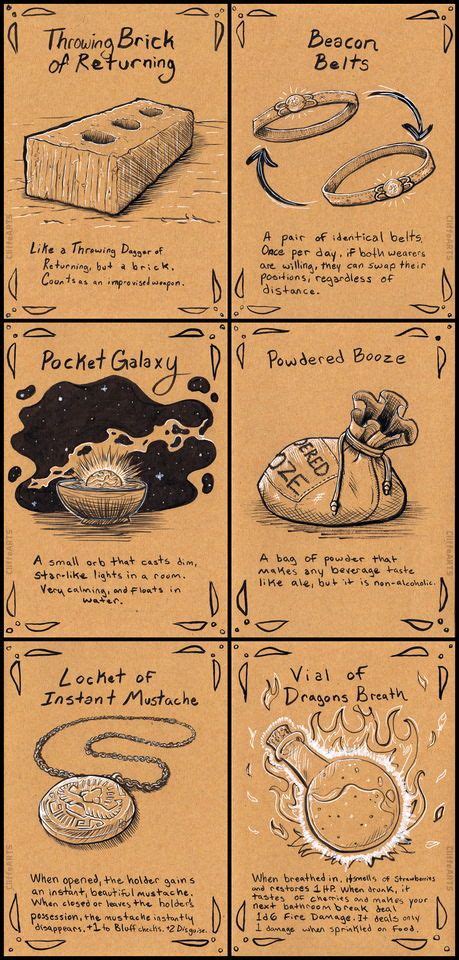 Throwing Brick
of Returning
Like a Throwing Dagger of
Returning, but a brick.
Counts as an improvised weapon.
CliffeARTS
Beacon
Belts
A pair of identical belts.
Once per day, if both wearers
are willing, they can swap their
positions, regardless of
distance.
CliffeARTS
Pocket Galaxy
A small orb that casts dim,
star-like lights in a room.
Very calming, and floats in
water.
CliffeARTS
Powdered Booze
DERED
OZE
A bag of powder that
makes any beverage taste
like ale, but it is non-alcoholic.
CliffeARTS
Locket of
Instant Mustache
When opened, the holder gains
an instant, beautiful mustache.
When closed or leaves the holders
possession, the mustache instantly
disappears. +1 to Bluff checks. +2 Disguise.
CliffeARTS
Vial of
Dragons Breath
When breathed in, it smells of Strawberries
and restores 1 HP. When drunk, it
tastes of cherries and makes your
next bathroom break deal
1d6 Fire Damage. It deals only
1 damage when sprinkled on food.
CliffeARTS